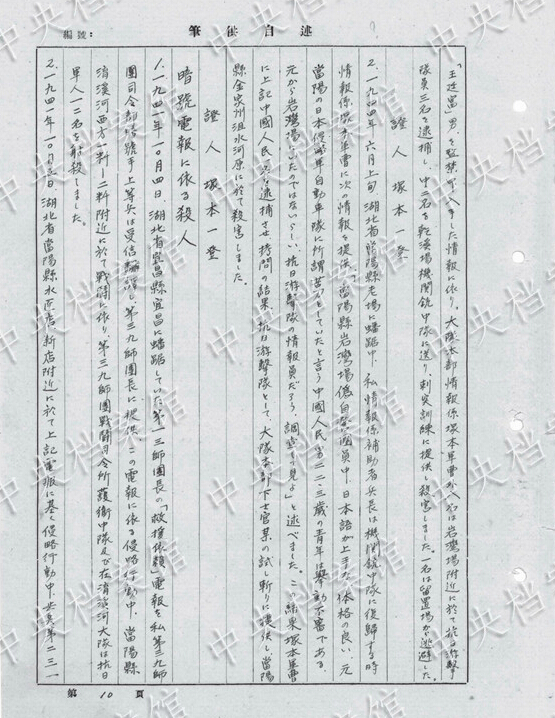 編號：
筆供自述
「王廷富」男、を監禁
した情報に依り。大隊本部情報係塚本軍曹以下八名は岩灣場附近に於て抗日游擊
隊員三名を逮捕し、中二名を乾溪場機關銃中隊に送り、刺突訓練に提供し殺害しました。一名は留置場から逃避した。
證人 塚本一登
2.一九四四年六月上旬、湖北省當陽縣老場に蟠踞中、私情報係補助者兵長は機關銃中隊に復歸する時
情報係塚本軍曹に次の情報を提供、「當陽縣岩灣場偽自警團員中、日本語が上手な体格の良い、元
當陽の日本侵略軍自動車隊に所謂苦力をしていたと言う中國人民男二二、三歲の青年は擧動不審である。
元から岩灣場にいたではないらしい、抗日游擊隊の情報員だろう、調査して見よ」と述べました。この結果塚本軍曹
に上記中國人民を逮捕させ拷問の結果、抗日游擊隊として、大隊本部下士官某の試し斬りに提供し、當陽
縣金家州沮水河原に於て殺害しました。
證人 塚本一登
暗號電報に依る殺人
1.一九四一年一〇月四日、湖北省宜昌縣宜昌に蟠踞していた第一三師團長の「救援依賴」電報を私第三九師
團司令部暗號手上等兵は受信飜譯し、第三九師團長に提供。この電報に依る侵略行動中、當陽縣
淯溪河西方一粁—二粁附近に於て戰鬪に依り、第三九師團戰鬪司令所護衛中隊及び在淯溪河大隊は抗日
軍人一二名を射殺しました。
2.一九四一年一〇月五日、湖北省當陽縣水
店新店附近に於て上記電報に基く侵略行動中、步兵第二三一
第 10 頁
中央档案馆